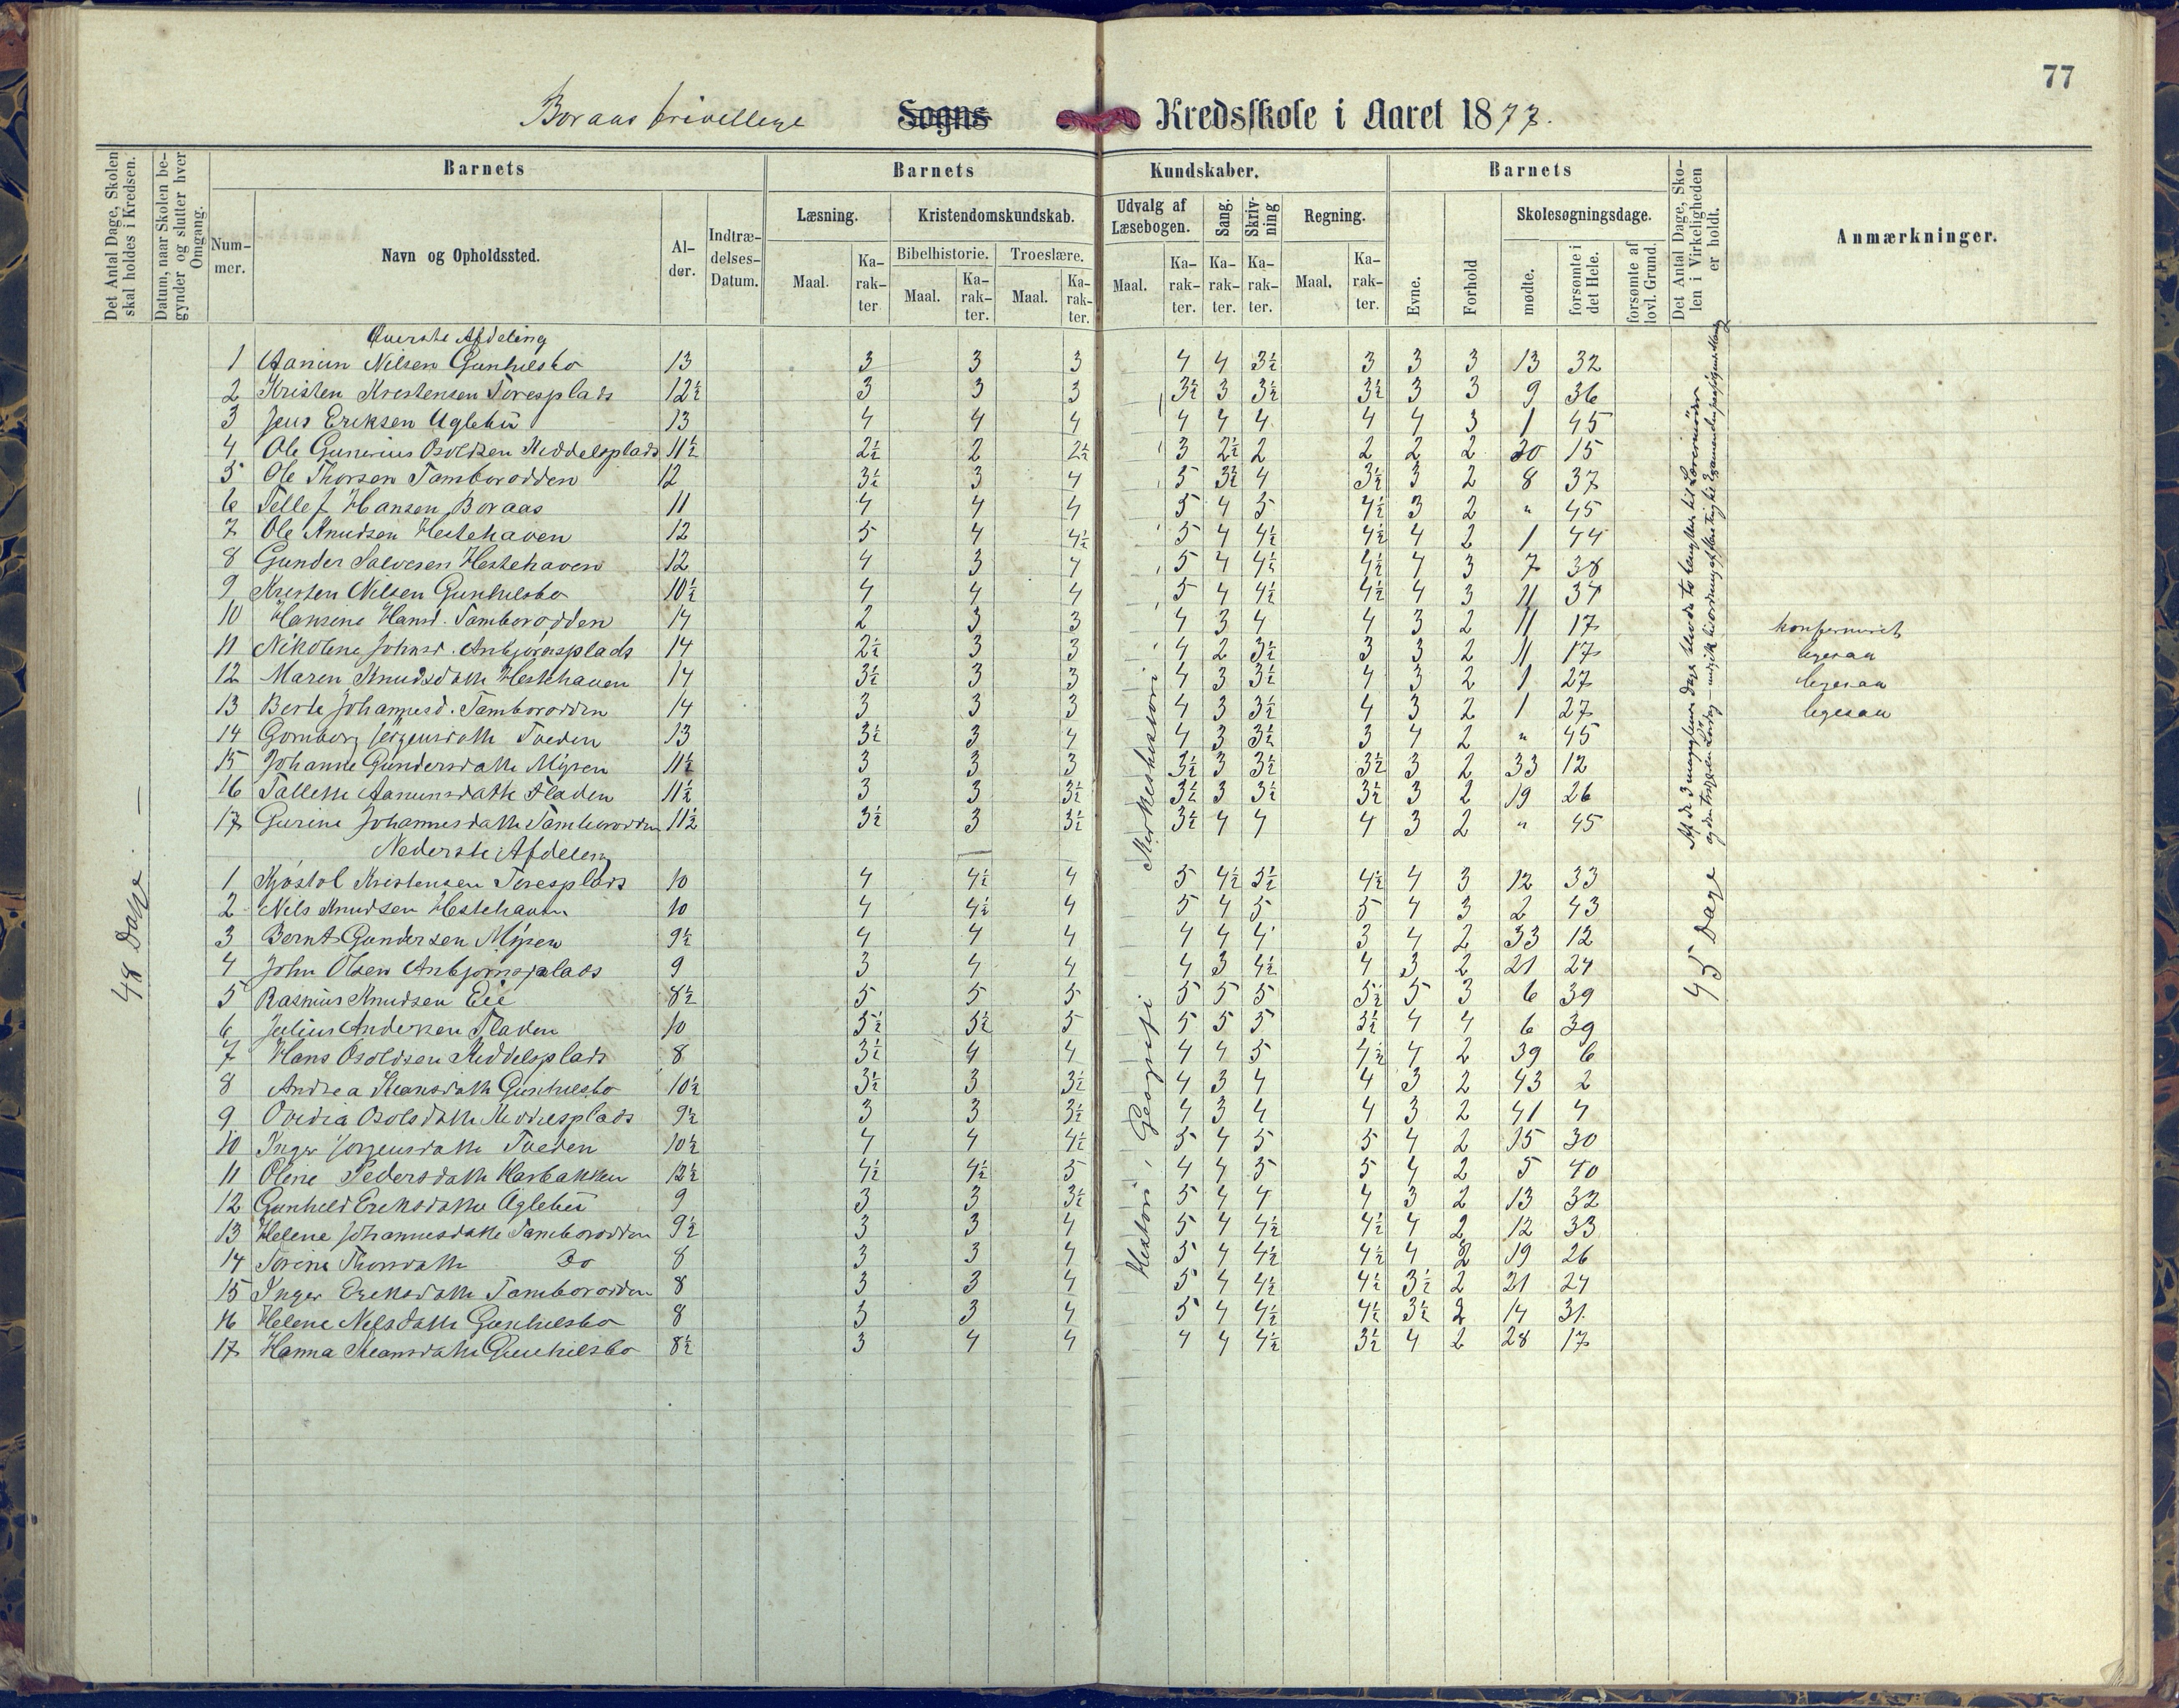 77
Boraas frivillige Sogns Kredsskole i Aaret 1877.
Det Antal Dage, Skolen skal holdes i Kredsen.
Datum, naar Skolen begynder og slutter hver Omgang.
Barnets
Barnets Kundskaber.
Barnets
Det Antal Dage, Skolen i Virkeligheden er holdt.
Anmærkninger.
Nummer.
Navn og Opholdssted.
Alder.
Indtrædelses-Datum.
Læsning.
Kristendomskundskab.
Udvalg af Læsebogen.
Sang.
Skrivning
Regning.
Evne.
Forhold
Skolesøgningsdage.
Bibelhistorie.
Troeslære.
mødte.
forsømte i det Hele.
forsømte af lovl. Grund.
Maal. Karakter Maal. Karakter. Maal. Karakter. Maal. Karakter. Karakter. Karakter. Maal. Karakter.
48 Dage
45 Dage
Øverste Afdeling
1 Aanun Nilsen Gunhilsbo 13 3 3 3 4 4 3½ 3 3 3 13 32
2 Kristen Kristensen Toresplads 12½ 3 3 3 3½ 3 3½ 3½ 3 3 9 36
3 Jens Eriksen Uglebu 13 4 4 4 4 4 4 4 4 3 1 45
4 Ole Gunerius Osoldsen Meddelsplads 11½ 2½ 2 2½ 3 2½ 2 2 2 2 30 15
5 Ole Thorsen Tamborodden 12 3½ 3 4 5 3½ 4 3½ 3 2 8 37
6 Tellef Hansen Boraas 11 4 4 4 5 4 5 4½ 3 2 " 45
7 Ole Knudsen Hestehaven 12 5 4 4½ 5 4 4½ 4½ 4 2 1 44
8 Gunder Salvesen Hestehaven 12 4 3 4 5 4 4½ 4½ 4 3 7 38
9 Kristen Nilsen Gunhilsbo 10½ 4 4 4 5 4 4½ 4½ 4 3 11 34
10 Hansine Hansd. Tamborodden 14 2 3 3 4 3 4 4 3 2 11 17 konfirmeret
11 Nikoline Johnsd. Anbjørnsplads 14 2½ 3 3 4 2 3½ 3 3 2 11 17 ligesaa
12 Maren Knudsdatt Hestehaven 14 3½ 3 3 4 3 3½ 4 3 2 1 27 ligesaa
13 Berte Johannesd. Tamborodden 14 3 3 3 4 3 3½ 4 3 2 1 27 ligesaa
14 Gomborg Jørgensdatt Tveden 13 3½ 3 4 4 3 3½ 3 4 2 " 45
15 Johanne Gundersdatt Myren 11½ 3 3 3 3½ 3 3½ 3½ 3 2 33 12
16 Tallette Aanunsdatt Fladen 11½ 3 3 3½ 3½ 3 3½ 3½ 3 2 19 26
17 Gurine Johannesdatt Tamborodden 11½ 3½ 3 3½ 3½ 4 4 4 3 2 " 45
Nederste Afdeling
1 Kjøstol Kristensen Toresplads 10 4 4½ 4 5 4½ 5½ 4½ 4 3 12 33
2 Nils Knudsen Hestehaven 10 4 4½ 4 5 4 5 5 4 3 2 43
3 Bernt Gundersen Myren 9½ 4 4 4 4 4 4 3 4 2 33 12
4 John Olsen Anbjørnsplads 9 3 4 4 4 3 4½ 4 3 2 21 24
5 Rasmus Knudsen Eie 8½ 5 5 5 5 5 5 5½ 5 3 6 39
6 Julius Andersen Fladen 10 5½ 5½ 5 5 5 5 3½ 4 4 6 39
7 Hans Osoldsen Meddelsplads 8 3½ 4 4 4 4 5 4½ 4 2 39 6
8 Andrea Steansdatt Gunhilsbo 10½ 3½ 3 3½ 4 3 4 4 3 2 43 2
9 Ovidia Osolsdatt Meddelsplads 9½ 3 3 3½ 4 3 4 4 3 2 41 4
10 Inger Jørgensdatt Tveden 10½ 4 4 4½ 5 4 5 5 4 2 15 30
11 Oline Pedersdatt Harbakken 12½ 4½ 4½ 5 4 4 5 5 4 2 5 40
12 Gunhild Eriksdatter Uglebu 9 3 3 3½ 5 4 4 4 3 2 13 32
13 Helene Johannesdatt Tamborodden 9½ 3 3 4 5 4 4½ 4½ 4 2 12 33
14 Torine Thorsdatt Do 8 3 3 4 5 4 4½ 4½ 4 2 19 26
15 Inger Eriksdatt Tamborodden 8 3 3 4 5 4 4½ 4½ 3½ 2 21 24
16 Helene Nilsdatt Gunhilsbo 8 3 3 4 5 4 4½ 4½ 3½ 2 14 31
17 Hanna Steansdatt Gunhilsbo 8½ 3 4 4 4 4 4½ 3½ 4 2 28 17
Historie, Geografi Kirkehistorie
Af de 3 manglende Dage